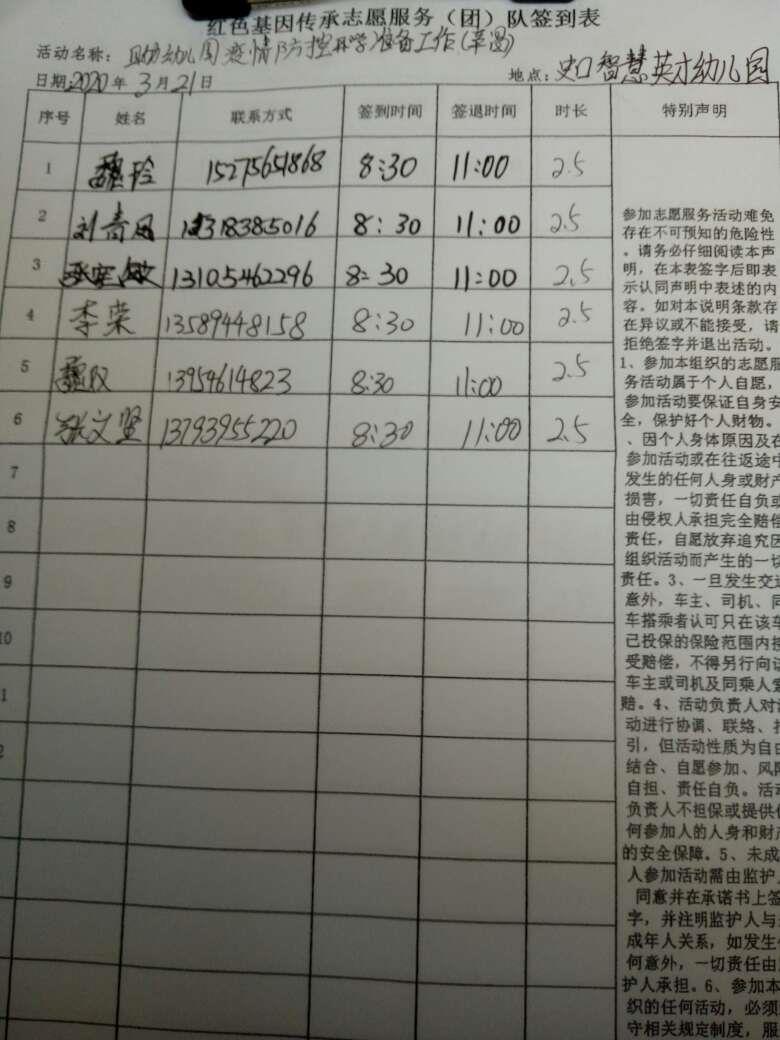 红色基因传承志愿服务（团）队签到表
活动名称：助幼儿园疫情防控开学准备工作
日期2020年3月21日 地点：史口智慧英才幼儿园
序号 姓名 联系方式 签到时间 签退时间 时长 特别声明
1 魏玲 15275651868 8:30 11:00 2.5
2 刘青 8:30 11:00 2.5
3 13105462296 8:30 11:00 2.5
4 李荣 13589448158 8:30 11:00 2.5
5 魏 13954614823 8:30 11:00 2.5
6 张文贤 13793955220 8:30 11:00 2.5
7
8
9
10
1
2
参加志愿服务活动难免
存在不可预知的危险性
。请务必仔细阅读本声
明，在本表签字后即表
示认同声明中表述的内
容。如对本说明条款存
在异议或不能接受，请
拒绝签字并退出活动。
1、参加本组织的志愿服
务活动属于个人自愿，
参加活动要保证自身安
全，保护好个人财物。
、因个人身体原因及在
参加活动或在往返途中
发生的任何人身或财产
损害，一切责任自负或
由侵权人承担完全赔偿
责任，自愿放弃追究因
组织活动而产生的一切
责任。3、一旦发生交通
意外，车主、司机、同
车搭乘者认可只在该车
已投保的保险范围内接
受赔偿，不得另行向该
车主或司机及同乘人索
赔。4、活动负责人对活
动进行协调、联络、指
引，但活动性质为自由
结合、自愿参加、风险
自担、责任自负。活动
负责人不担保或提供任
何参加人的人身和财产
的安全保障。5、未成
人参加活动需由监护
同意并在承诺书上签
字，并注明监护人与
成年人关系，如发生
何意外，一切责任由
护人承担。6、参加本
织的任何活动，必须
守相关规定制度，服